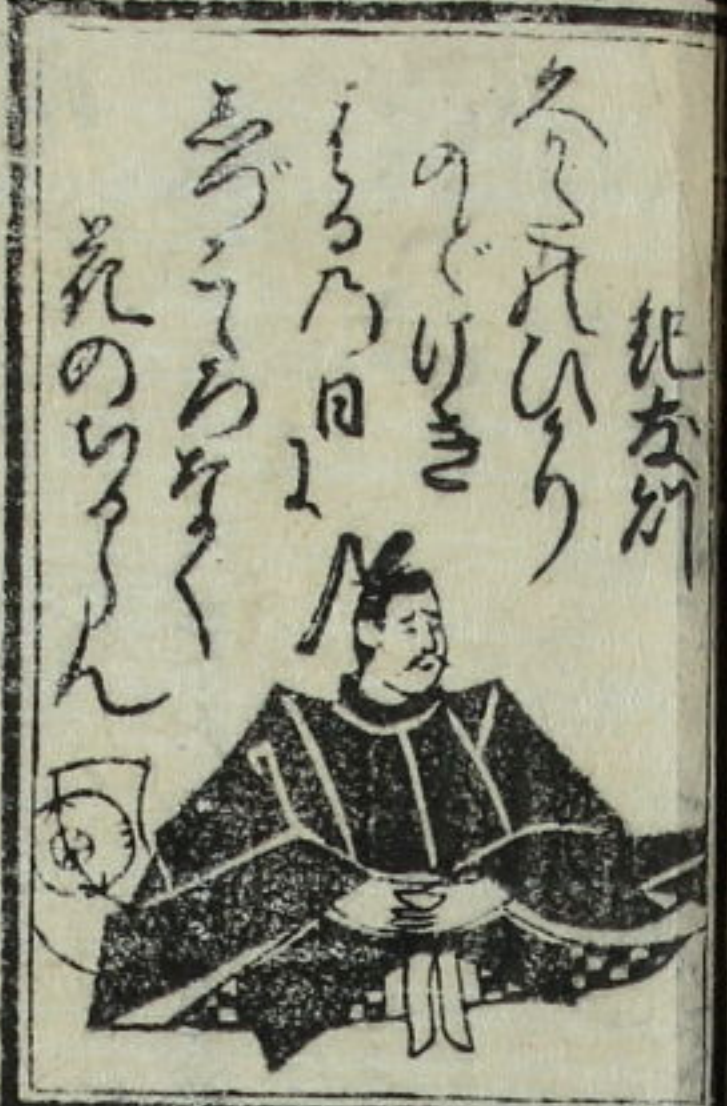 紀友則
久かたのひかり
のどけき
はる乃日に
志づこころなく
花のちるらん